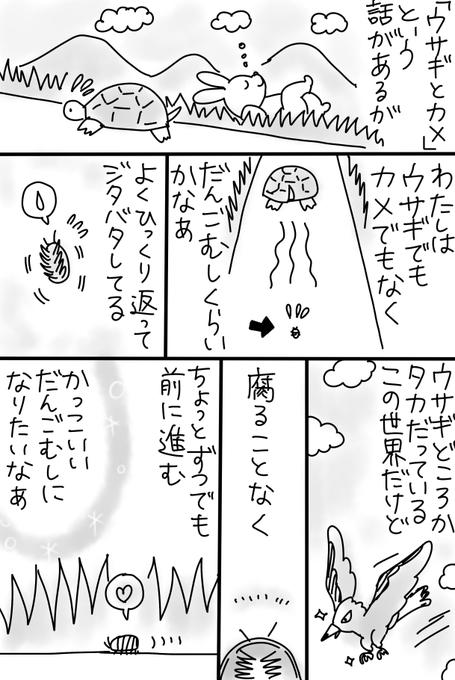 「ウサギとカメ」
という
話があるが
わたしは
ウサギでも
カメでもなく
だんごむしくらい
かなぁ
よくひっくり返って
ジタバタしてる
ウサギどころか
タカだっている
この世界だけど
腐ることなく
ちょっとずつでも
前に進む
かっこいい
だんごむしに
なりたいなぁ